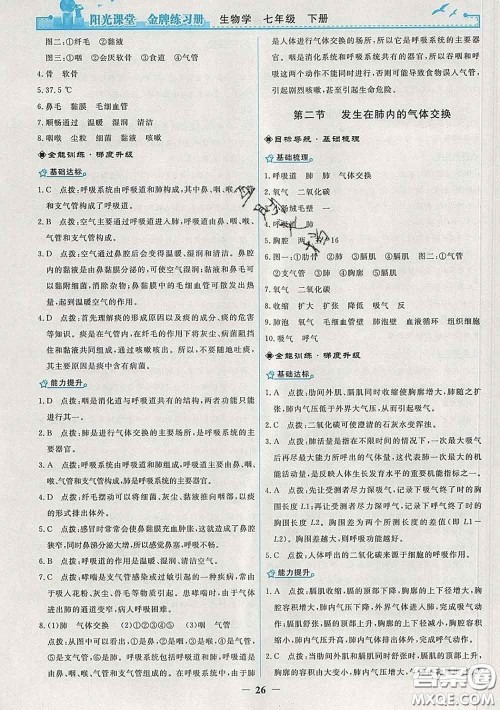 阳光课堂 金牌练习册 生物学 七年级 下册
图二:①纤毛 ②黏液
图三:①咽 ②会厌软骨 ③食道 ④气管
4.骨 软骨
5.37.5 ℃
6.鼻毛 黏膜 毛细血管
7.顺畅通过 温暖 湿润 清洁
8.咽喉 尘粒 细菌 黏液 咳嗽
全能训练·梯度升级
基础达标
1.C 点拨:呼吸系统由呼吸道和肺构成,其中鼻、咽、喉、气管和支气管构成了呼吸道。
2.A 点拨:空气主要通过呼吸道进入肺,呼吸道由鼻、咽、喉、气管和支气管构成。
3.C 点拨:空气通过鼻腔后会变得温暖、湿润和清洁。鼻腔前部的鼻毛
附细菌,消除杂物;鼻黏膜内的毛细血管可以放出热量,提高进入体内空气的温度,所以冬天用鼻呼吸能起到预热空气的作用。
4.D 点拨:首先理解痰的形成原因以及痰的成分、痰的危害等知识。痰是在气体的吸入过程中将灰尘、病菌阻挡住和黏液共同形成的,通过咳嗽咳出。所以,痰不是来自消化道,其主要原因是痰中含有病菌。
能力提升
1.B 点拨:咽是消化道与呼吸道共有的结构,两者的功能只能进行其一。
2.D 点拨:肺是进行气体交换的主要场所,是呼吸系统的主要器官。
3.D 点拨:呼吸系统包括呼吸道和肺,呼吸道由鼻、咽、喉、气管和支气管构成,肺是呼吸系统的主要器官。
4.D 点拨:纤毛摆动可以将细菌、灰尘、黏液推向咽部,以痰的形式排出体外。
5.D 点拨:感冒时常常会使鼻黏膜充血肿胀,这使鼻腔变得狭窄,同时鼻涕分泌物增大,所以感觉鼻塞,呼吸不畅。
6.C 点拨:哮喘是支气管感染或过敏引起的一种疾病,常由于吸入花粉、灰尘、兽毛等物质引起。患哮喘病时,气体进出肺的通道变窄,人体呼吸困难。
7.(1)肺 气体交换 (2)⑤ ⑥ (3)咽 喉 气管
点拨:从图中可以看出:①是鼻、②是咽、③是喉、④是气管、⑤是支气管、⑥是肺。呼吸系统包括呼吸道和肺,鼻、咽、喉、气管、支气管组成呼吸道,是气体的通道,肺
是人体进行气体交换的场所,是呼吸系统的主要器官。其中咽是消化系统和呼吸系统共有的器官。因此吞咽和呼吸这两个动作不能同时进行,否则可能导致食物误入气管,引起剧烈咳嗽,甚至发生危险。
第二节 发生在肺内的气体交换
目标导练·基础梳理
基础梳理
1.呼吸道 肺 肺 气体交换
2.氧气 二氧化碳
6.图一:①肋骨 ②肺 ③膈肌 图二:①气管
②支气管 ③肺 ④膈肌 ⑤胸廓
8.收缩 扩大 扩张 吸入 回缩 呼出
9.肺泡 氧气 毛细血管壁 肺泡 血液循环 组织细胞
10.吸气 呼气
全能训练·梯度升级
基础达标
1.A 点拨:肋间外肌、膈肌同时收缩使胸廓增大,肺随之扩张,肺内气压减小,从而引起吸气。
2.C 点拨:二氧化碳可使澄清的石灰水变浑浊。
3.C 点拨:肺活量是指在不限时间的情况下,一次最大吸气后再尽力呼出的气体量。这代表肺一次最大的机能活动量,是反映人体生长发育水平的重要机能指标之一。
4.B 点拨:先让受测者尽力深吸气,记录吸气终了时的胸围长度;再让受测者尽力深呼气,记录下呼气终了时的胸围长度。两个胸围长度的差值(即L1-L2)。表示该同学的胸围差。
5.D 点拨:人体呼出的二氧化碳来源于体内细胞的呼吸作用。
能力提升
1.B 点拨:吸气时,膈肌的顶部下降,胸廓的上下径增大,胸腔容积增大,肺内气压下降,外界气体入肺,完成吸气动作;呼气时,膈肌的顶部上升,胸廓的上下径缩小,胸腔容积缩小,肺内气压上升,体内气体出肺,完成呼气动作。
2.A 点拨:吸气时,膈肌收缩,膈顶部下降,胸廓扩大,引起胸廓的容积由大变小,肺内气压由高变
26